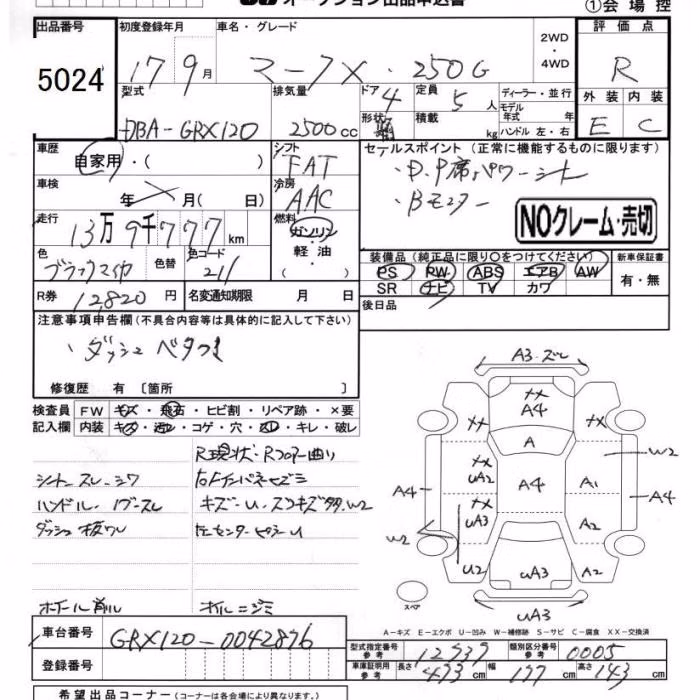 オークション出品申込書
①会場控
出品番号
5024
初度登録年月
17 9月
車名・グレード
マークX・250G
2WD
・4WD
評価点
R
外装 内装
E C
型式
DBA-GRX120
排気量
2500cc
ドア 4
形状
定員 5人
積載 kg
ディーラー・並行
モデル年式 年
ハンドル 左・右
車歴
自家用・( )
シフト
FAT
車検
年 月( 日)
冷房
AAC
走行
13万9千777km
燃料
ガソリン
軽油
( )
色
ブラックマイカ
色替
色コード
211
R券 12820円
名変通知期限 月 日
セールスポイント(正常に機能するものに限ります)
・D.P席パワーシート
・Bモニター
NOクレーム・売切
装備品(純正品に限り○をつけてください)
PS PW ABS エアB AW
SR ナビ TV カワ
新車保証書
有・無
後日品
注意事項申告欄(不具合内容等は具体的に記入して下さい)
・ダッシュベタつき
修復歴 有〔箇所 〕
検査員記入欄
FW キズ・飛石・ヒビ割・リペア跡・×要
内装 キズ・汚レ・コゲ・穴・凹レ・キレ・破レ
R現状・Rフロアー曲り
シートスレ・シワ
右Fインパネヒズミ
ハンドル・ノブスレ
キズ・U・スリキズ多.W2
ダッシュ板ワレ
左センターピラーU
ホイール削ル
ホルニジミ
A3・ズレ
XX A4
XX
XX
A
W2
XX UA2
A4
A1
A4
A4
XX UA3
A2
W2
U2
UA3
A2
UA3
スペア
A−キズ E−エクボ U−凹み W−補修跡 S−サビ C−腐食 XX−交換済
車台番号
GRX120-0042876
登録番号
型式指定番号 参考
12937
類別区分番号 参考
0005
車庫証明用 参考
長さ 473cm
幅 177cm
高さ 143cm
希望出品コーナー(コーナーは各会場により異なります。)